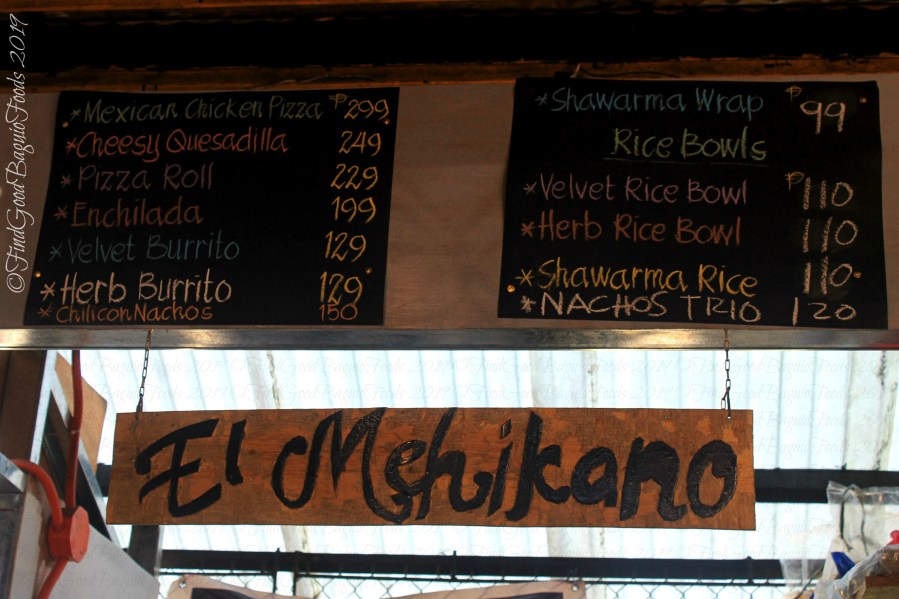 ©FindGoodBaguioFoods 2019
*Mexican Chicken Pizza ₱299
*Cheesy Quesadilla 249
*Pizza Roll 229
*Enchilada 199
*Velvet Burrito 129
*Herb Burrito 129
*Chili con Nachos 150
*Shawarma Wrap ₱99
Rice Bowls
*Velvet Rice Bowl ₱110
*Herb Rice Bowl 110
*Shawarma Rice 110
*NACHOS TRIO 120
El Mehikano